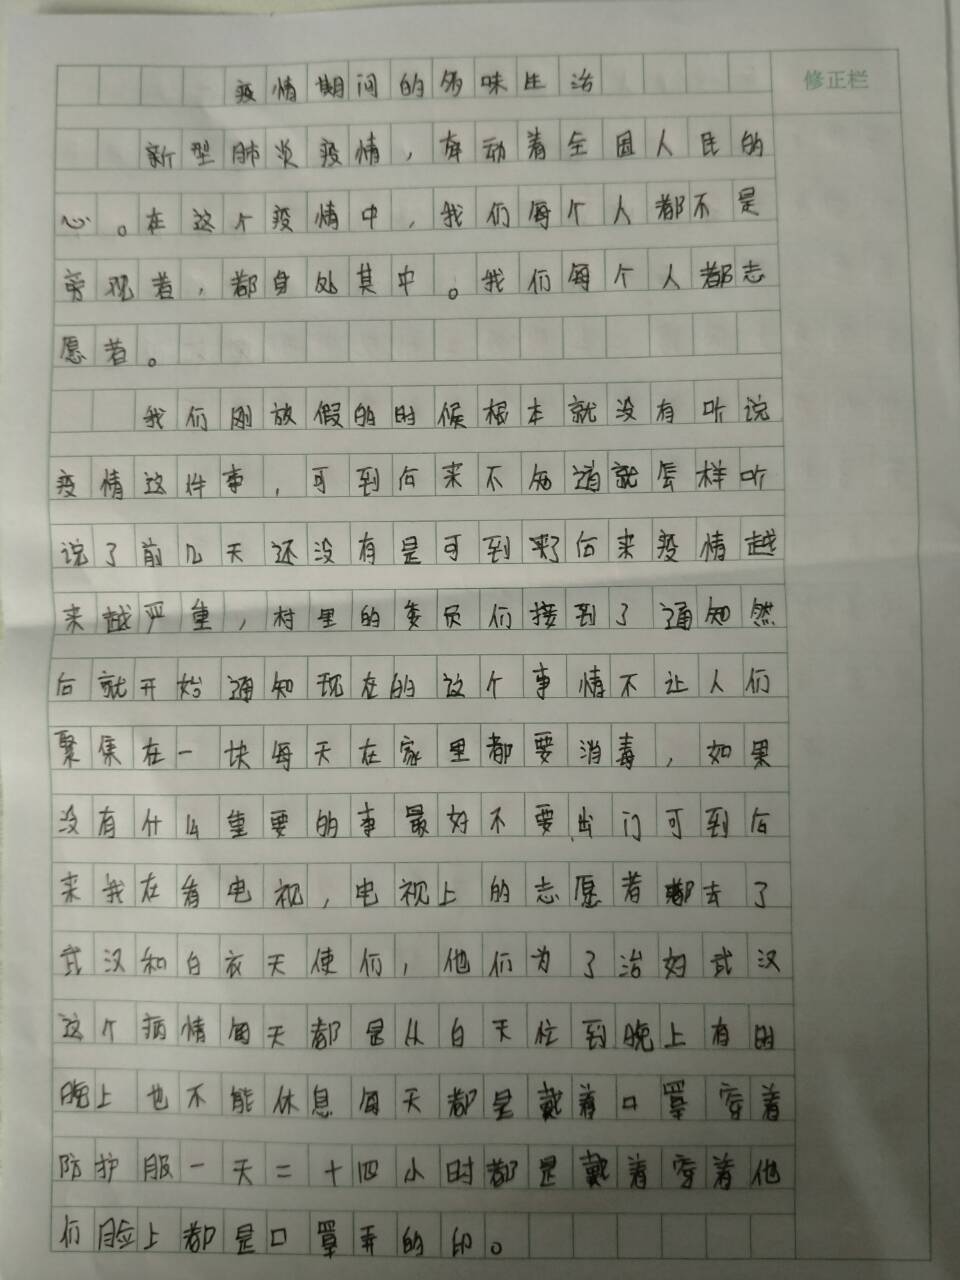 疫情期间的多味生活
修正栏
新型肺炎疫情，牵动着全国人民的
心。在这个疫情中，我们每个人都不是
旁观者，都身处其中。我们每个人都志
愿者。
我们刚放假的时候根本就没有听说
疫情这件事，可到后来不知道就怎样听
说了前几天还没有是可到了后来疫情越
来越严重，村里的委员们接到了通知然
后就开始通知现在的这个事情不让人们
聚集在一块每天在家里都要消毒，如果
没有什么重要的事最好不要出门可到后
来我在看电视，电视上的志愿者都去了
武汉和白衣天使们，他们为了治好武汉
这个病情每天都是从白天忙到晚上有的
晚上也不能休息每天都是戴着口罩穿着
防护服一天二十四小时都是戴着穿着他
们脸上都是口罩弄的印。